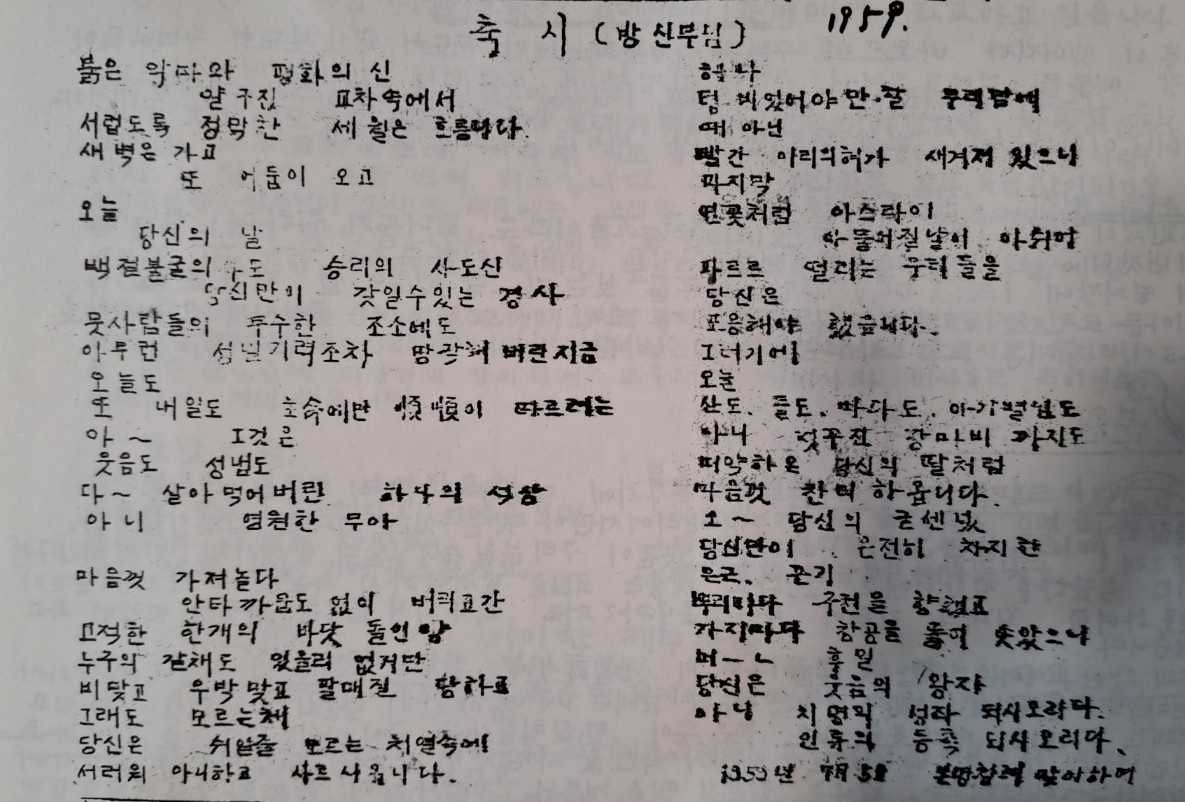 축 시 (방 신부님) 1959.
붉은 악마와 평화의 신
얄구진 교차속에서
서럽도록 적막한 세월은 흐릅니다.
새벽은 가고
또 어둠이 오고
오늘
당신의 날
백절불굴의 승리의 사도신
당신만이 갖일수있는 경사
뭇사람들의 무수한 조소에도
아무런 기력조차 망각해 버린지금
오늘도
또 내일도 따르려는
아 ~ 그것은
웃음도 성냄도
다 ~ 살아 먹어버린 하나의 석상
아니 영원한 무아
마음껏 가져놀다
안타까움도 없이 버리고간
고적한 한개의 바닷 돌인양
누구의 갈채도 있을리 없거만
비맞고 우박맞고 팔매질 당하고
그래도 모르는체
당신은 쉬임을 모르는 치열속에
서러워 아니하고 사르시옵니다.
허나
텅 비있어야만 할 우리맘에
때 아닌
빨간 새겨져 있으니
마지막
연꽃처럼 아스라이
아쉬어
파르르 떨리는 우리들을
당신은
포옹해야 했습니다.
그러기에
오늘
산도. 들도. 바다도. 아기별님도
아니 장마비 까지도
당신의 딸처럼
마음껏 하옵니다.
오 ~ 당신의 굳센넋
당신만이 온전히 차지한
은근. 끈기
뿌리마다 구천을 향했고
가지마다 창공을 뚫어 솟았으니
휴일
당신은 웃음의 왕자
아니 치명의 성좌 되시오리다.
인류의 등촉 되시오리다.
1959년 맞아하여